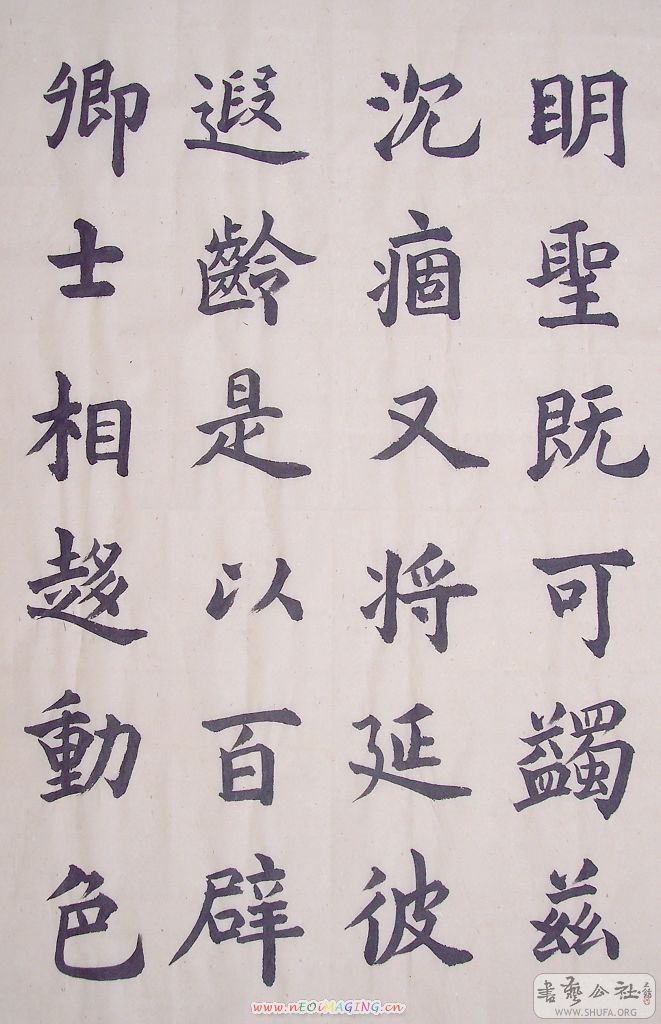 明聖既可蠲茲
沉痼又将延彼
遐齡是以百辟
卿士相趍動色
www.nEOiMAGING.cn
書藝公社
WWW.SHUFA.ORG